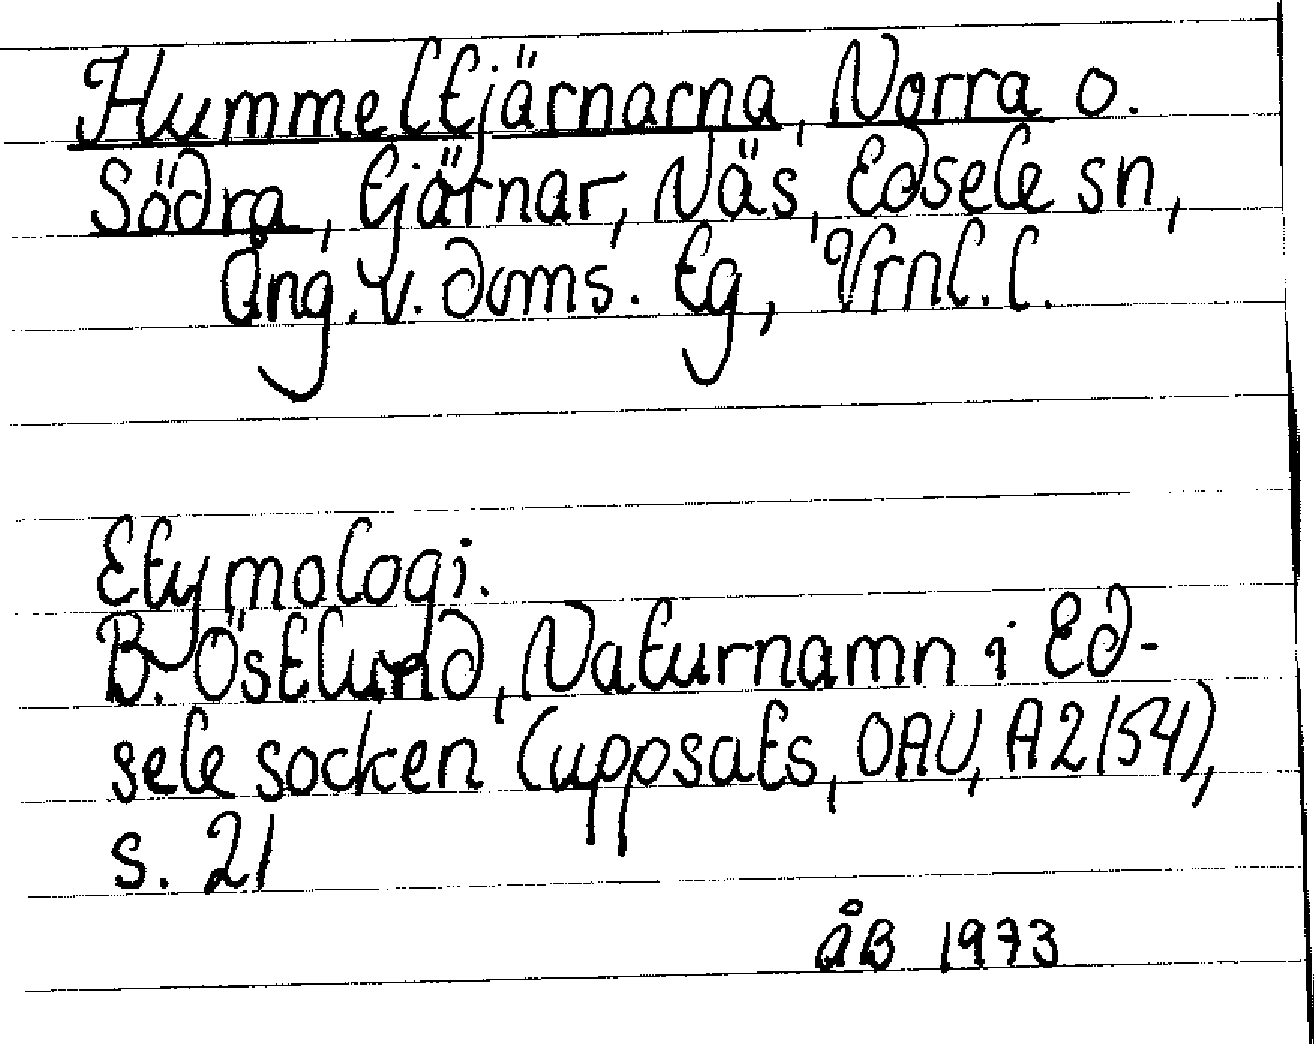 Hummeltjärnarna, Norra o.
Södra, tjärnar, Näs, Edsele sn,
Ång. v. doms. tg, Vrnl. l.
Etymologi.
B. Östlund, Naturnamn i Ed-
sele socken (uppsats, OAU, A2154),
s. 21
åB 1973